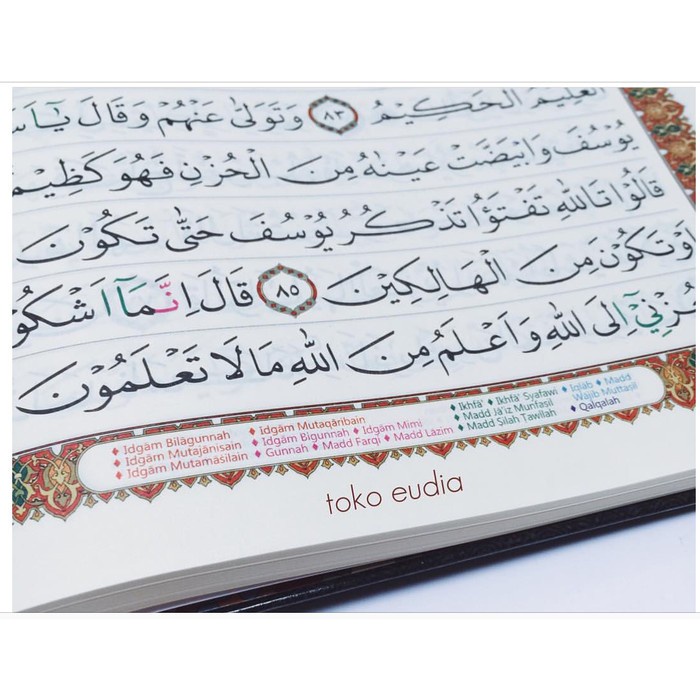 الْعَلِيمُ الْحَكِيمُ ٨٣ وَتَوَلّٰى عَنْهُمْ وَقَالَ يَٓا
يُوسُفَ وَابْيَضَّتْ عَيْنَاهُ مِنَ الْحُزْنِ فَهُوَ كَظِيمٌ
قَالُوا تَاللّٰهِ تَفْتَؤُا تَذْكُرُ يُوسُفَ حَتّٰى تَكُونَ
اَوْ تَكُونَ مِنَ الْهَالِكِينَ ٨٥ قَالَ اِنَّمَٓا اَشْكُو
وَحُزْنِٓي اِلَى اللّٰهِ وَاَعْلَمُ مِنَ اللّٰهِ مَا لَا تَعْلَمُونَ
♦ Idgām Bilāgunnah ♦ Idgām Mutaqāribain ♦ Ikhfā' ♦ Ikhfā' Syafawi ♦ Iqlāb ♦ Madd
♦ Idgām Mutajānisain ♦ Idgām Bigunnah ♦ Idgām Mimi ♦ Madd Jā'iz Munfaşil Wājib Muttaşil
♦ Idgām Mutamāsilain ♦ Gunnah ♦ Madd Farqi ♦ Madd Lāzim ♦ Madd Silah Tawilah ♦ Qalqalah
toko eudia